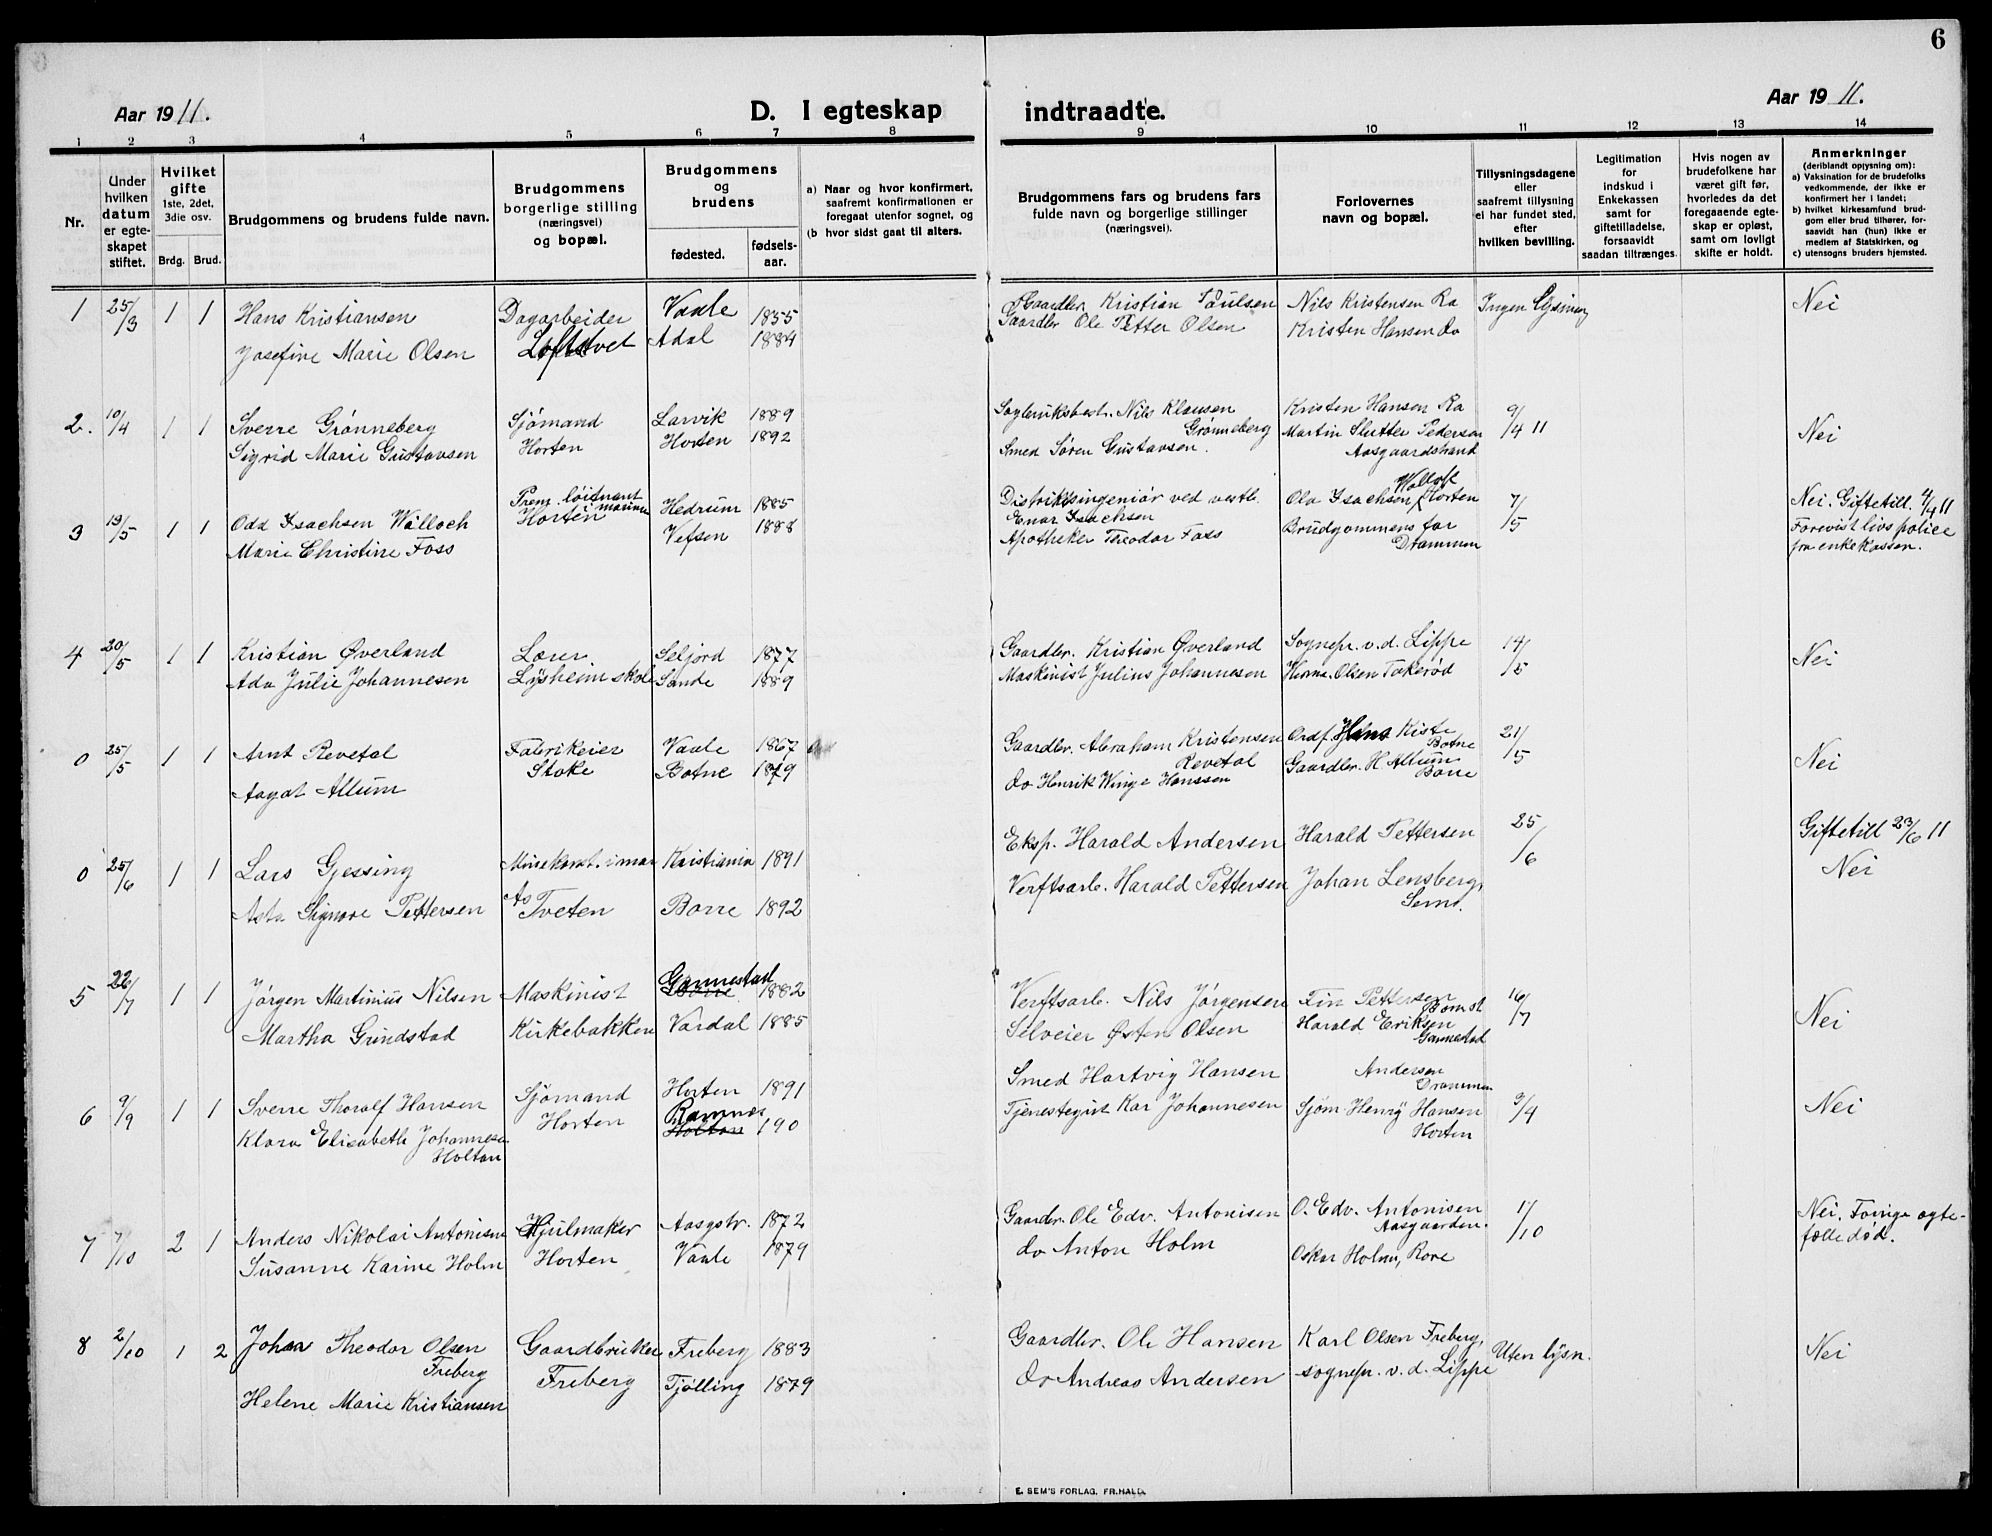 6
Aar 19 11.
D. I egteskap indtraadte.
Aar 19 11.
1 2 3 4 5 6 7 8 9 10 11 12 13 14
Nr.
Under hvilken datum er egteskapet stiftet.
Hvilket gifte 1ste, 2det, 3die osv.
Brdg. Brud.
Brudgommens og brudens fulde navn.
Brudgommens borgerlige stilling (næringsvei) og bopæl.
Brudgommens og brudens
fødested.
fødselsaar.
a) Naar og hvor konfirmert, saafremt konfirmationen er foregaat utenfor sognet, og
(b hvor sidst gaat til alters.
Brudgommens fars og brudens fars fulde navn og borgerlige stillinger (næringsvei).
Forlovernes navn og bopæl.
Tillysningsdagene eller saafremt tillysning ei har fundet sted, efter hvilken bevilling.
Legitimation for indskud i Enkekassen samt for giftetilladelse, forsaavidt saadan tiltrænges.
Hvis nogen av brudefolkene har været gift før, hvorledes da det foregaaende egteskap er opløst, samt om lovligt skifte er holdt.
Anmerkninger (deriblandt oplysning om):
a) Vaksination for de brudefolks vedkommende, der ikke er konfirmert her i landet;
b) hvilket kirkesamfund brudgom eller brud tilhører, forsaavidt han (hun) ikke er medlem af Statskirken, og
c) utensogns bruders hjemsted.
1 25/3 1 1 Hans Kristiansen Dagarbeider Vaale 1855 Gaardbr. Kristian Paulsen Nils Kristensen Ra Ingen lysning Nei
Josefine Marie Olsen Adal 1884 Gaardbr Ole Petter Olsen Kristen Hansen do
2. 10/4 1 1 Sverre Grønneberg Sjømand Larvik 1889 Nils Klausen Grønneberg Kristen Hansen Ra 9/4 11 Nei
Sigrid Marie Gustavsen Horten Horten 1892 Smed Søren Gustavsen. Martin Slutter Pedersen Aasgaardstrand
3 13/5 1 1 Odd Isachsen Walloch Prem. løitnant i marinen Hedrum 1885 Distriktsingeniør ved vestb. Einar Isachsen Ola Isachsen Walloch Horten 7/5 Nei. Giftetill. 4/4 11
Marie Christine Foss Horten Vefsen 1888 Apotheker Theodor Foss Brudgommens far Drammen Forevist livs police fra enkekassen.
4 20/5 1 1 Kristian Øverland Lærer Seljord 1877 Gaardbr. Kristian Øverland Sognepr. v. d. Lippe 14/5 Nei
Ada Julie Johannesen Lysheim skole Sande 1889 Maskinist Julius Johannesen Olsen Takerød
0 25/5 1 1 Arnt Revetal Fabrikeier Vaale 1867 Gaardbr. Abraham Kristensen Revetal Ordf. Hans Kiste Botne 21/5 Nei
Aagot Allum Stoke Botne 1879 do Henrik Winge Hanssen Gaardbr. H. Allum Borre
0 25/6 1 1 Lars Gjessing Kristiania 1891 Eksp. Harald Andersen Harald Pettersen 25/6 Giftetill 23/6 11 Nei
Asta Signore Pettersen Tveten Borre 1892 Verftsarb. Harald Pettersen Johan Lensberg, Sem.
5 22/7 1 1 Jørgen Martinius Nilsen Maskinist Gannestad Borre 1882 Verftsarb. Nils Jørgensen Fin Pettersen 16/7 Nei
Martha Grindstad Kirkebakken Vardal 1885 Selveier Østen Olsen Harald Eriksen Gannestad
6 9/9 1 1 Sverre Thoralf Hansen Sjømand Horten 1891 Smed Hartvig Hansen Andersen Drammen 3/4 Nei
Klara Elisabeth Johannesen Holtan Horten Ramnes Holtan 190 Tjenestegut Kar Johannesen Sjøm. Henry Hansen Horten
7 7/10 2 1 Anders Nikolai Antonisen Hjulmaker Aasgstr. 1872 Gaardbr. Ole Edv. Antonisen O. Edv. Antonisen Aasgaarden. 1/10 Nei. Forrige egtefelle død.
Susanne Karine Holm Horten Vaale 1879 do Anton Holm Oskar Holm, Rore
8 2/10 1 2 Johan Theodor Olsen Freberg Gaardbruker Freberg 1883 Gaardbr. Ole Hansen Karl Olsen Freberg, Uten lysn. Nei
Helene Marie Kristiansen Freberg Tjølling 1879 do Andreas Andersen sognepr. v. d. Lippe
E. SEM'S FORLAG, FR.HALD.